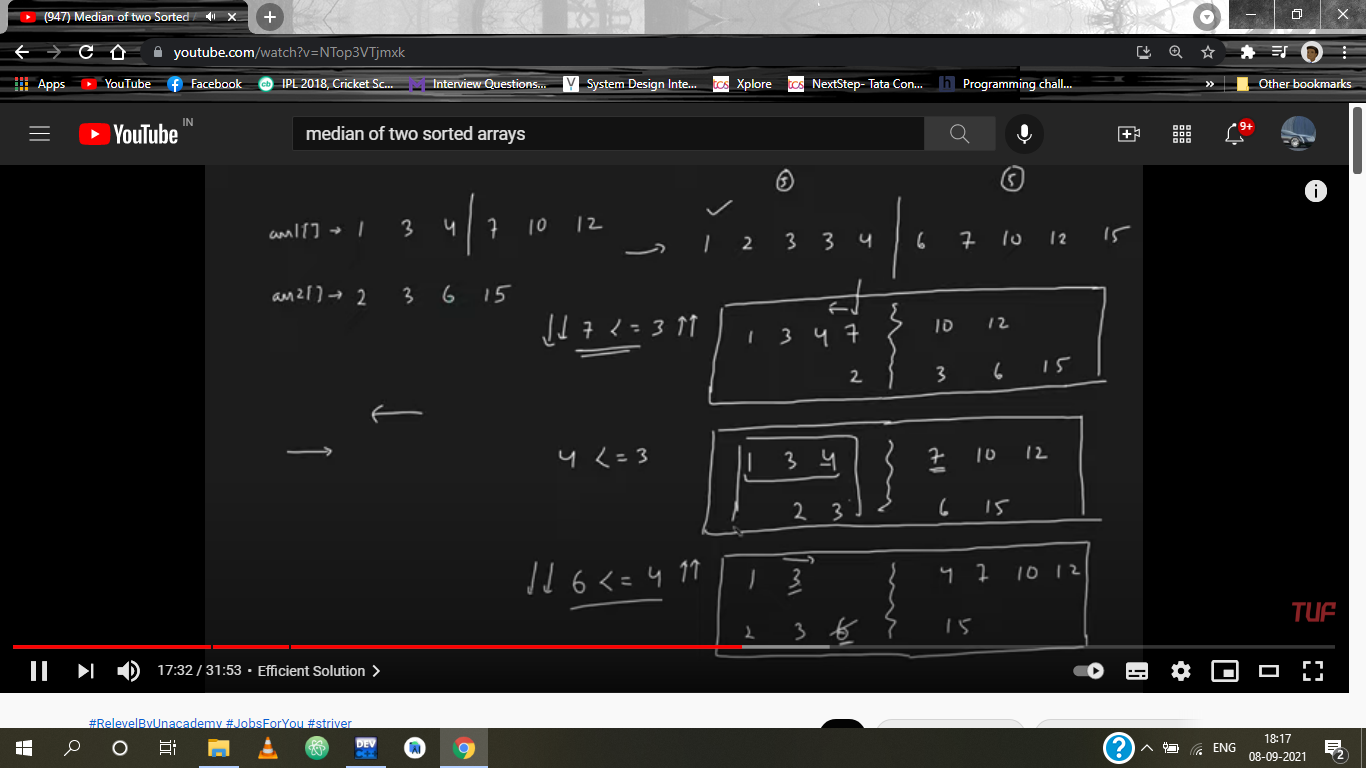 (947) Median of two Sorted
youtube.com/watch?v=NTop3VTjmxk
Apps YouTube Facebook IPL 2018, Cricket Sc... Interview Questions... System Design Inte... Xplore NextStep- Tata Con... Programming chall... » Other bookmarks
YouTube IN
median of two sorted arrays
9+
5 5
arr1[] → 1 3 4 | 7 10 12
→ 1 2 3 3 4 | 6 7 10 12 15
arr2[] → 2 3 6 15
↓↓ 7 <= 3 ↑↑
1 3 4 7 10 12
2 3 6 15
4 <= 3
1 3 4 7 10 12
2 3 6 15
↓↓ 6 <= 4 ↑↑
1 3 4 7 10 12
2 3 6 15
TUF
17:32 / 31:53 • Efficient Solution >
#RelevelByUnacademy #JobsForYou #striver
DEV
ENG
18:17
08-09-2021
2